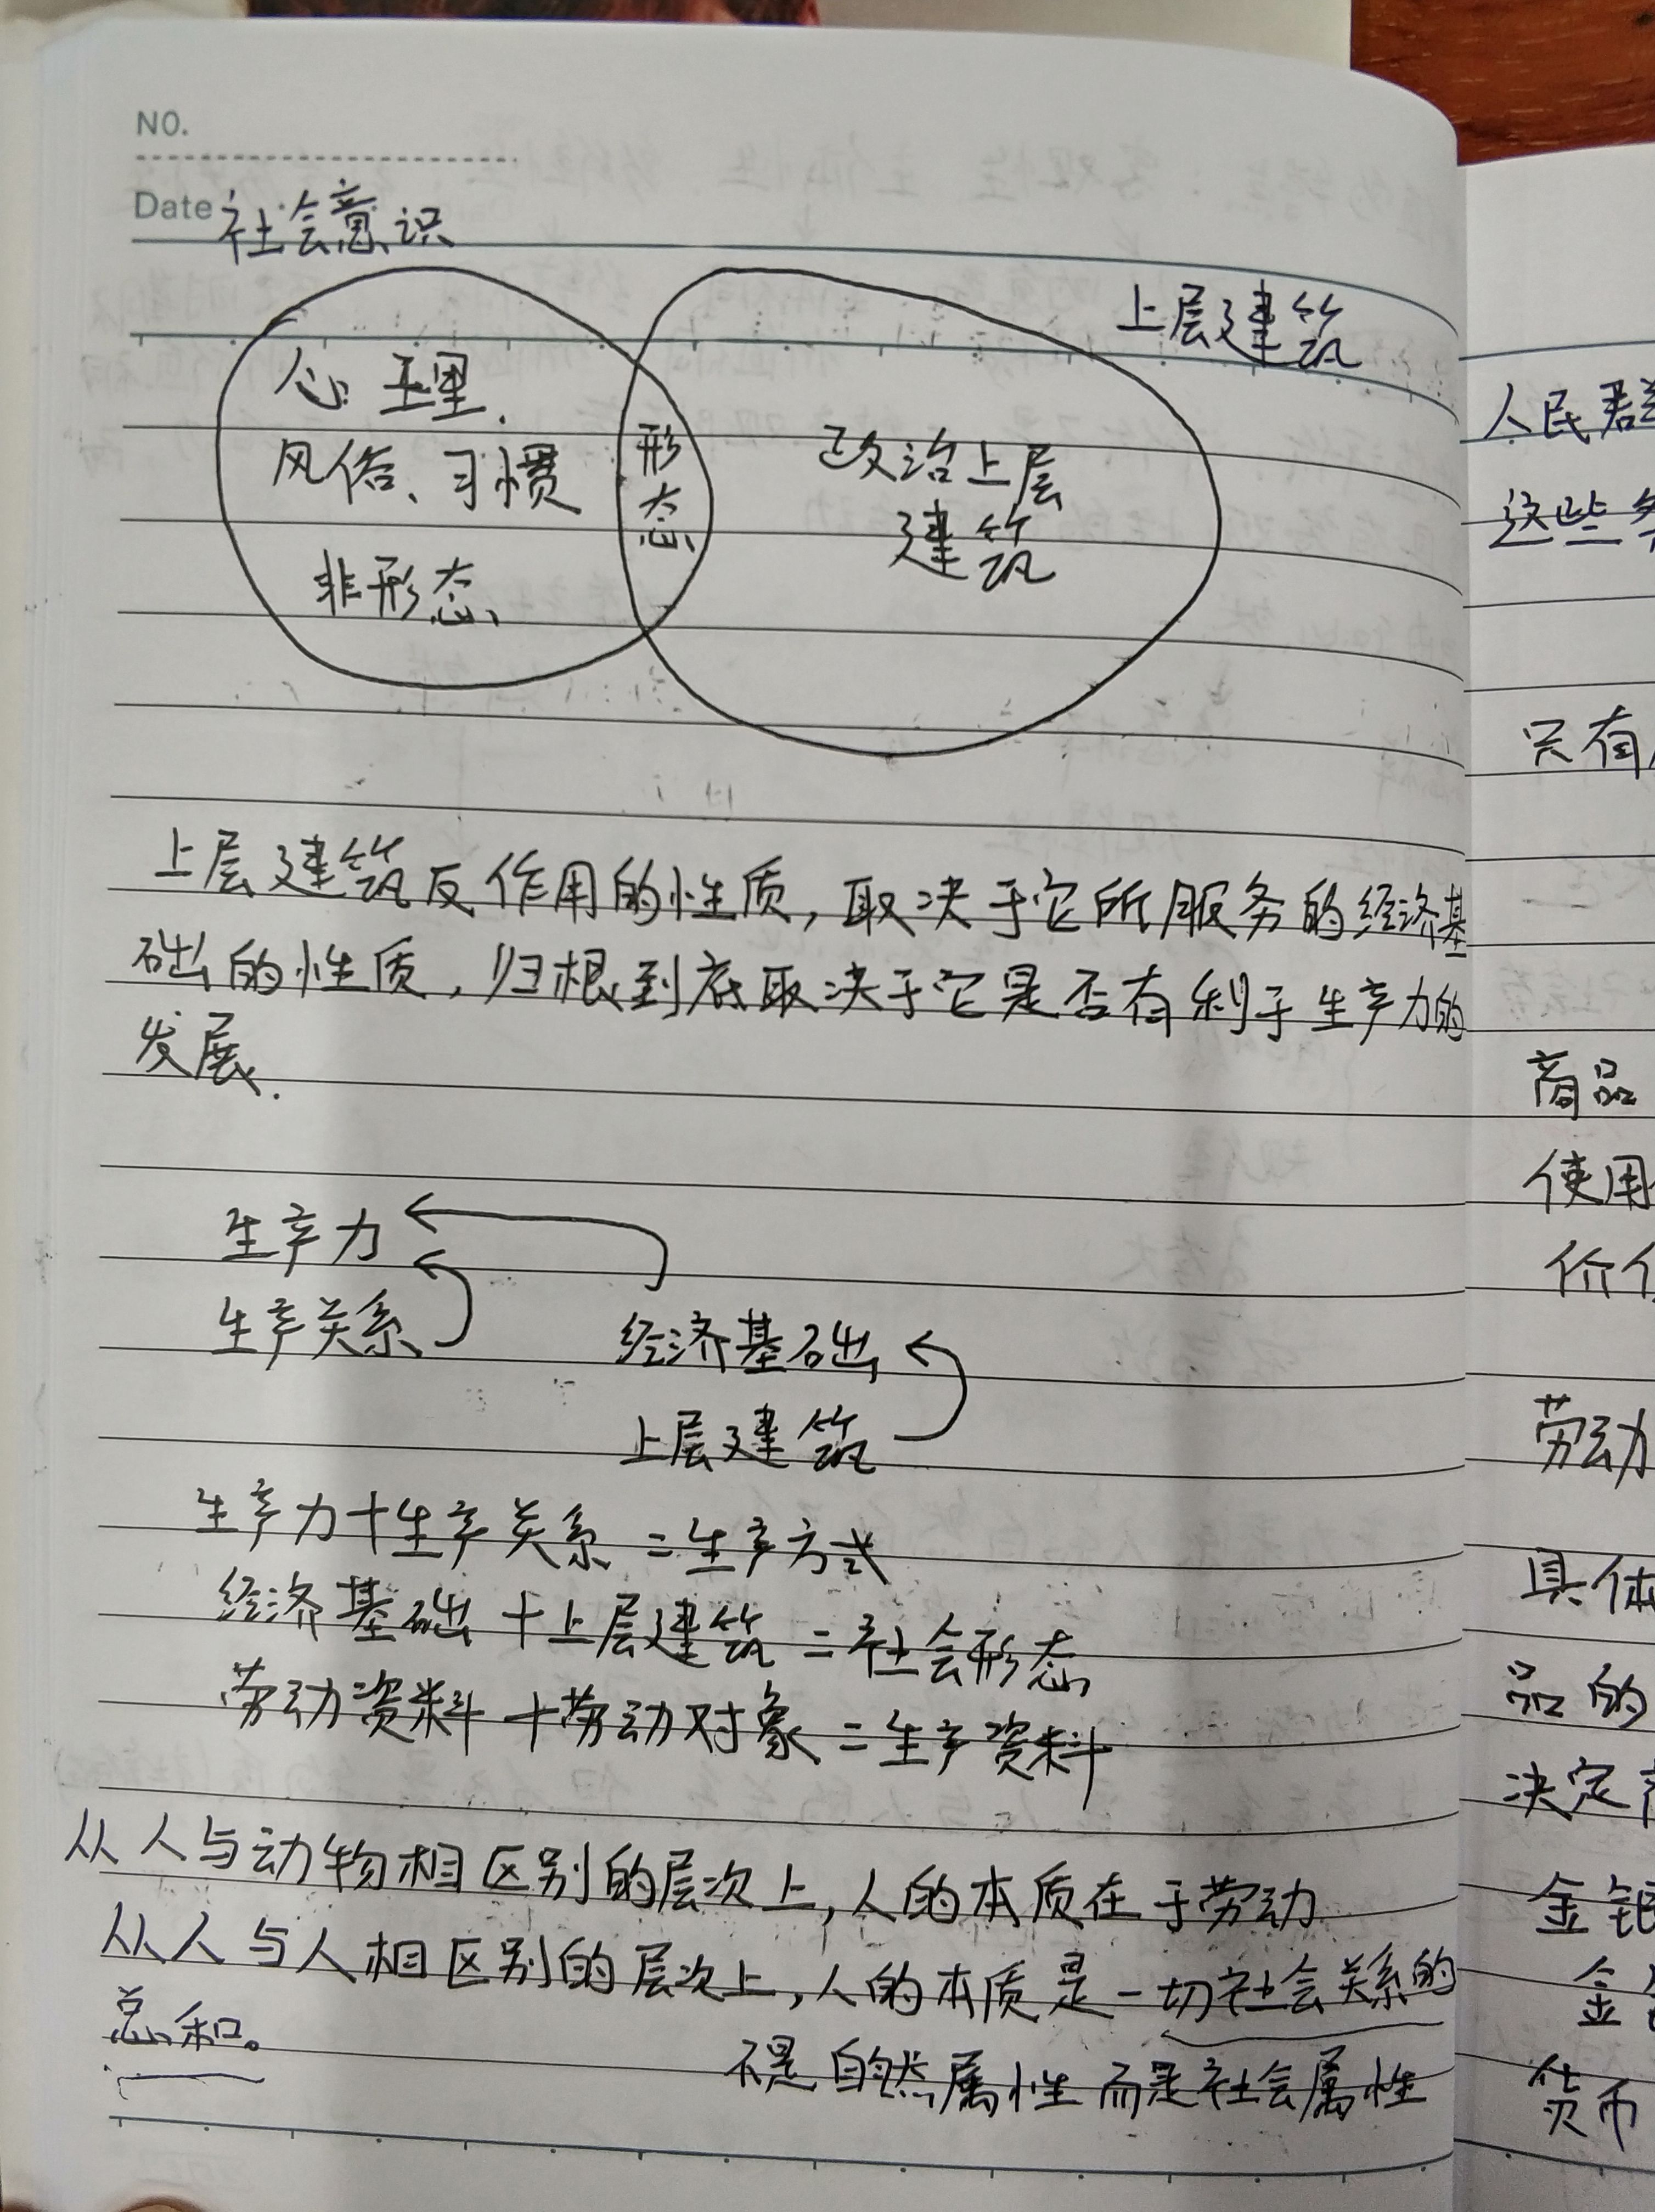 NO.
Date 社会意识
上层建筑
心理、
风俗、习惯
非形态
形
态
政治上层
建筑
上层建筑反作用的性质,取决于它所服务的经济基
础的性质,归根到底取决于它是否有利于生产力的
发展.
生产力
生产关系
经济基础
上层建筑
生产力+生产关系=生产方式
经济基础+上层建筑=社会形态
劳动资料+劳动对象=生产资料
从人与动物相区别的层次上,人的本质在于劳动
从人与人相区别的层次上,人的本质是一切社会关系的
总和。
不是自然属性而是社会属性
人民群
这些
只有
商品
使用
价
劳动
具体
品的
决定
金银
金
货币